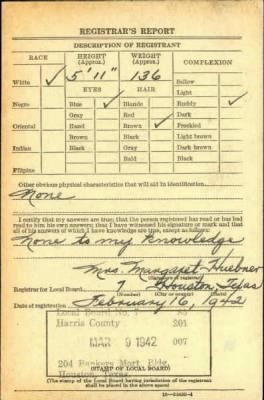 REGISTRAR'S REPORT
DESCRIPTION OF REGISTRANT
RACE HEIGHT (Approx.) WEIGHT (Approx.) COMPLEXION
White ✓ 5' 11" 136 Sallow
EYES HAIR Light
Negro Blue ✓ Blonde Ruddy ✓
Gray Red Dark
Oriental Hazel Brown ✓ Freckled
Brown Black Light brown
Indian Black Gray Dark brown
Bald Black
Filipino
Other obvious physical characteristics that will aid in identification
None
I certify that my answers are true; that the person registered has read or has had
read to him his own answers; that I have witnessed his signature or mark and that
all of his answers of which I have knowledge are true, except as follows:
None to my knowledge
Mrs. Margaret Huebner
Registrar for Local Board 7 Houston, Texas
(Number) (City or county) (State)
Date of registration February 16, 1942
Local Board No. 7
Harris County 201
MAR 9 1942 007
204 Bankers Mort. Bldg.
Houston, Texas
(STAMP OF LOCAL BOARD)
(The stamp of the Local Board having jurisdiction of the registrant
shall be placed in the above space)